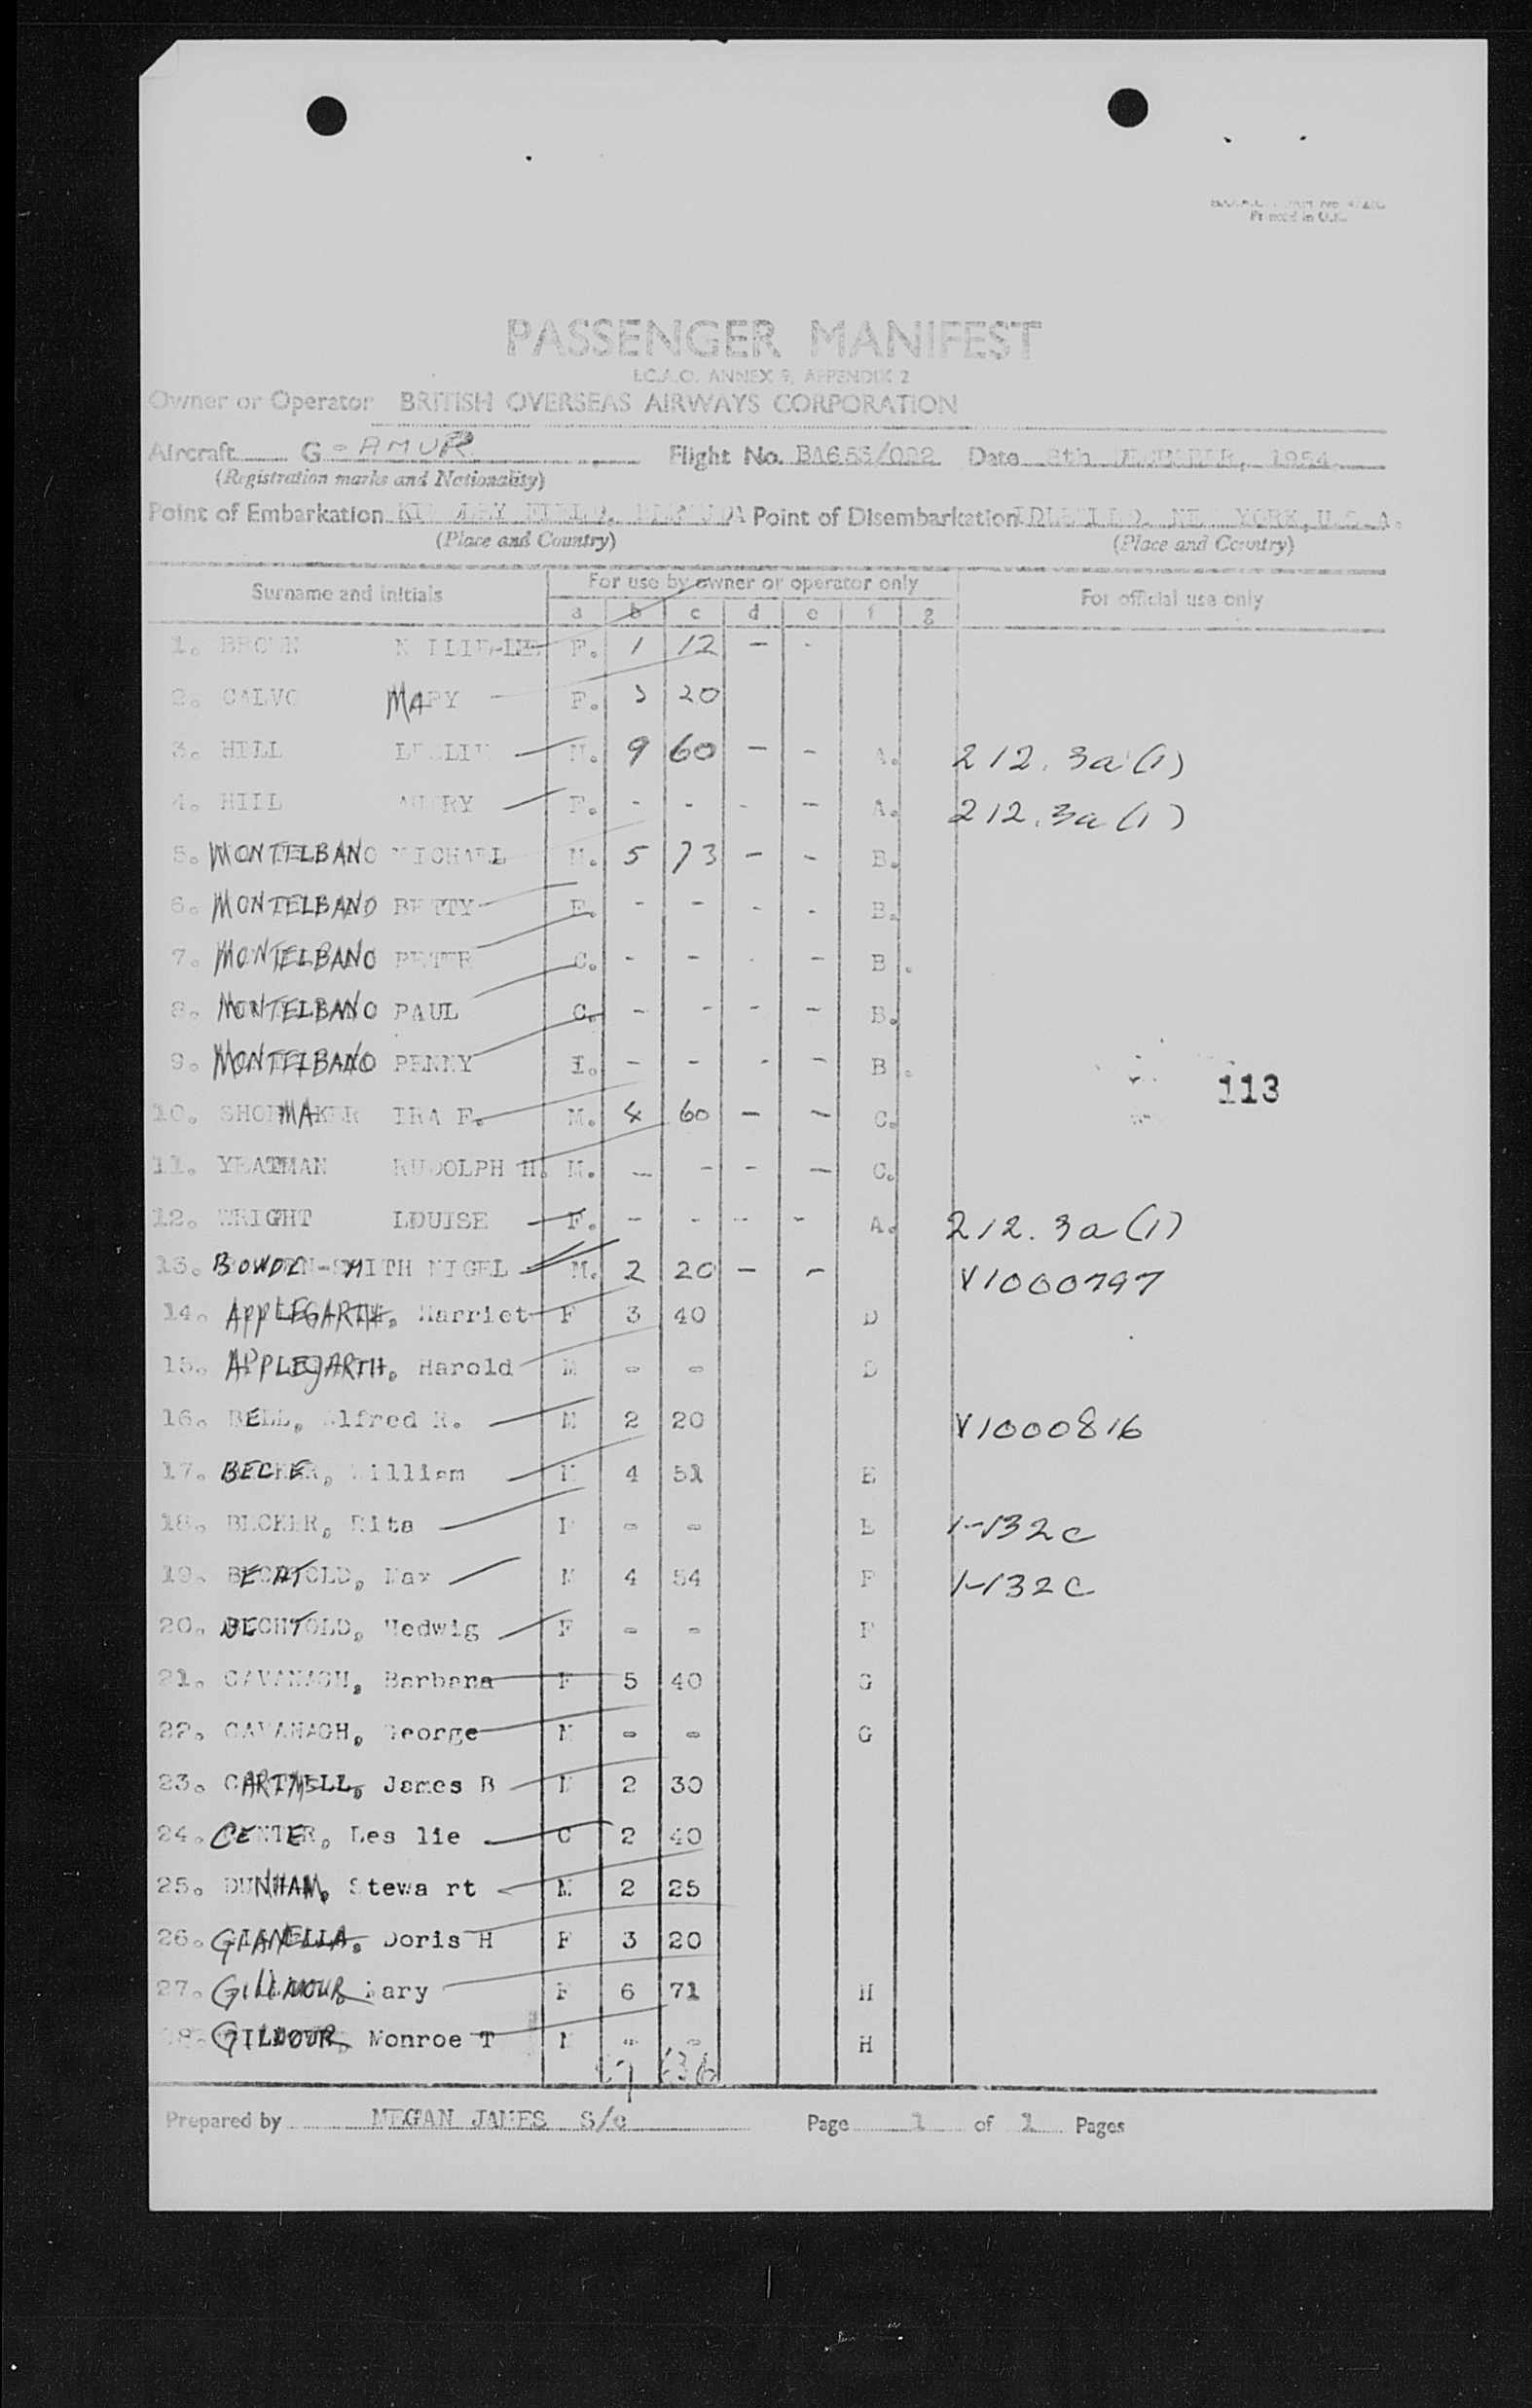 Printed in U.K.
PASSENGER MANIFEST
I.C.A.O. ANNEX 9, APPENDIX 2
Owner or Operator BRITISH OVERSEAS AIRWAYS CORPORATION
Aircraft G-AMUR Flight No. BA653/082 Date 8th DECEMBER, 1954
(Registration marks and Nationality)
Point of Embarkation KINDLEY FIELD, BERMUDA Point of Disembarkation IDLEWILD, NEW YORK, U.S.A.
(Place and Country) (Place and Country)
Surname and initials For use by owner or operator only For official use only
a b c d e f g
1. BROWN F. 1 12 - -
2. CALVO MARY F. 3 20
3. HILL LESLIE M. 9 60 - - A. 212.3a(1)
4. HILL AUDRY F. - - - - A. 212.3a(1)
5. MONTELBANO MICHAEL M. 5 73 - - B.
6. MONTELBANO BETTY F. - - - - B.
7. MONTELBANO PETER C. - - - - B.
8. MONTELBANO PAUL C. - - - - B.
9. MONTELBANO PENNY I. - - - - B.
113
10. SHOEMAKER IRA F. M. 4 60 - - C.
11. YEATMAN RUDOLPH H. M. - - - - C.
12. WRIGHT LOUISE F. - - - - A. 212.3a(1)
13. BOWDEN-SMITH NIGEL M. 2 20 - - V1000797
14. APPLEGARTH, Harriet F 3 40 D
15. APPLEGARTH, Harold M - - D
16. BELL, Alfred R. M 2 20 V1000816
17. BECKER, William M 4 51 E
18. BECKER, Rita F - - E 1-132c
19. BECHTOLD, Max M 4 54 F 1-132c
20. BECHTOLD, Hedwig F - - F
21. CAVANAGH, Barbara F 5 40 G
22. CAVANAGH, George M - - G
23. CARTMELL, James B M 2 30
24. CENTER, Les lie C 2 40
25. DUNHAM, Stewa rt M 2 25
26. GIANELLA, Doris H F 3 20
27. GILMOUR, Mary F 6 71 H
28. GILMOUR, Monroe T M - - H
Prepared by MEGAN JAMES S/c Page 1 of 1 Pages